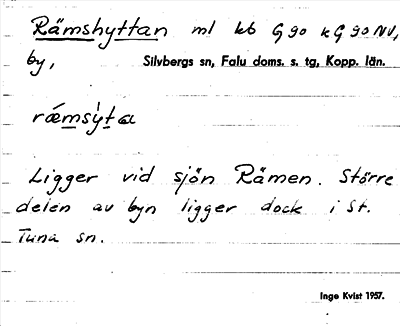 Rämshyttan ml kb G 90 k G 90 NV,
by, Silvbergs sn, Falu doms. s. tg, Kopp. län.
Ligger vid sjön Rämen. Större
delen av byn ligger dock i St.
Tuna sn.
Inge Kvist 1957.